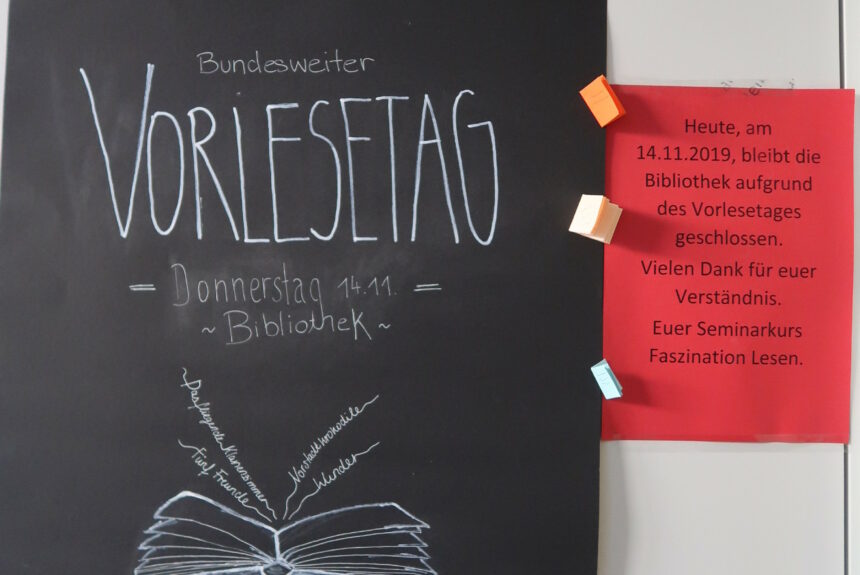 Bundesweiter
VORLESETAG
= Donnerstag 14.11. =
~ Bibliothek ~
~ Das fliegende Klassenzimmer
Fünf Freunde
Vorstadtkrokodile
Wunder
Heute, am
14.11.2019, bleibt die
Bibliothek aufgrund
des Vorlesetages
geschlossen.
Vielen Dank für euer
Verständnis.
Euer Seminarkurs
Faszination Lesen.